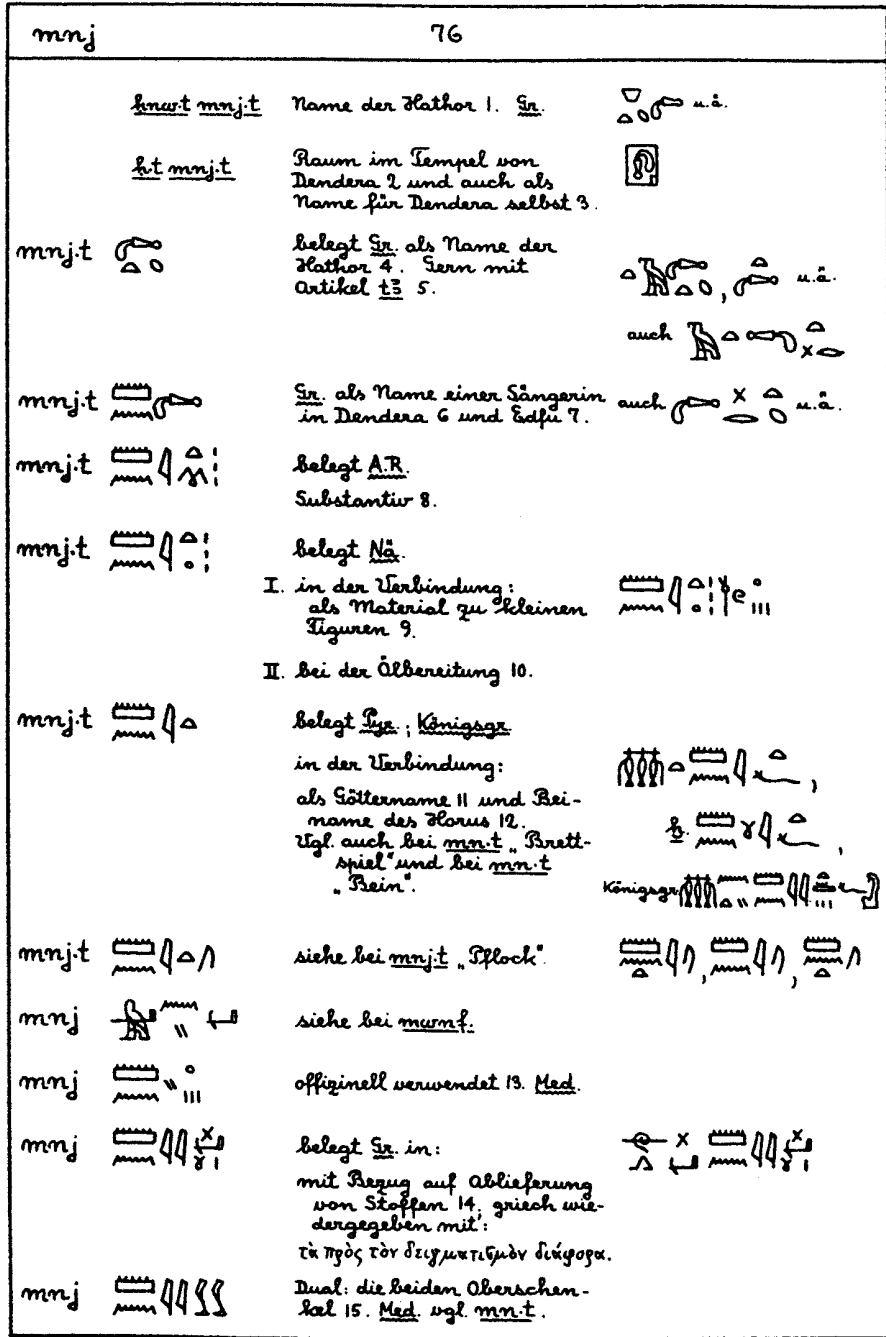 mnj 76
ḥnw.t mnj.t Name der Hathor 1. Gr. u.ä.
ḥ.t mnj.t Raum im Tempel von
Dendera 2 und auch als
Name für Dendera selbst 3.
mnj.t belegt Gr. als Name der
Hathor 4. Gern mit
Artikel tꜣ 5. , u.ä.
auch
mnj.t Gr. als Name einer Sängerin auch u.ä.
in Dendera 6 und Edfu 7.
mnj.t belegt A.R.
Substantiv 8.
mnj.t belegt Nä.
I. in der Verbindung:
als Material zu kleinen
Figuren 9.
II. bei der Ölbereitung 10.
mnj.t belegt Pyr.; Königsgr.
in der Verbindung: ,
als Göttername 11 und Bei-
name des Horus 12. ,
Vgl. auch bei mn.t „Brett-
spiel" und bei mn.t
„Bein". Königsgr.
mnj.t siehe bei mnj.t „Pflock". , ,
mnj siehe bei mwnf.
mnj offizinell verwendet 13. Med.
mnj belegt Gr. in:
mit Bezug auf Ablieferung
von Stoffen 14, griech wie-
dergegeben mit:
τὰ πρὸς τὸν δειγματισμὸν διάφορα.
mnj Dual: die beiden Oberschen-
kel 15. Med. vgl. mn.t.